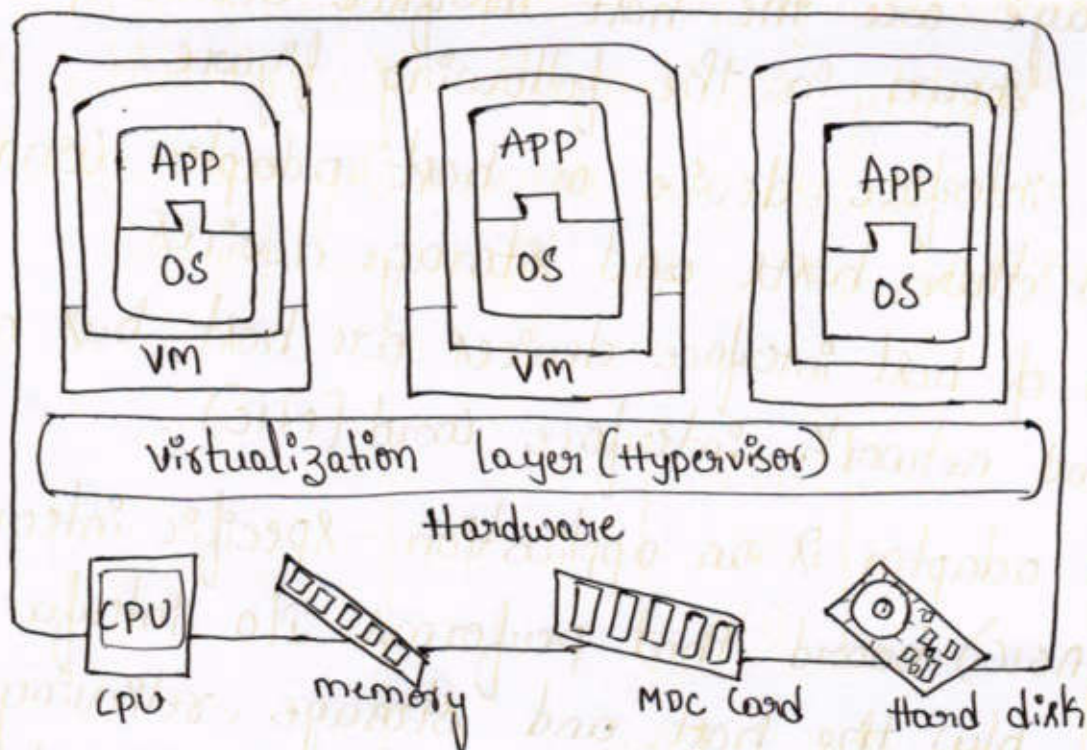 APP
OS
VM
APP
OS
VM
APP
OS
Virtualization layer (Hypervisor)
Hardware
CPU
CPU
memory
MDC Card
Hard disk